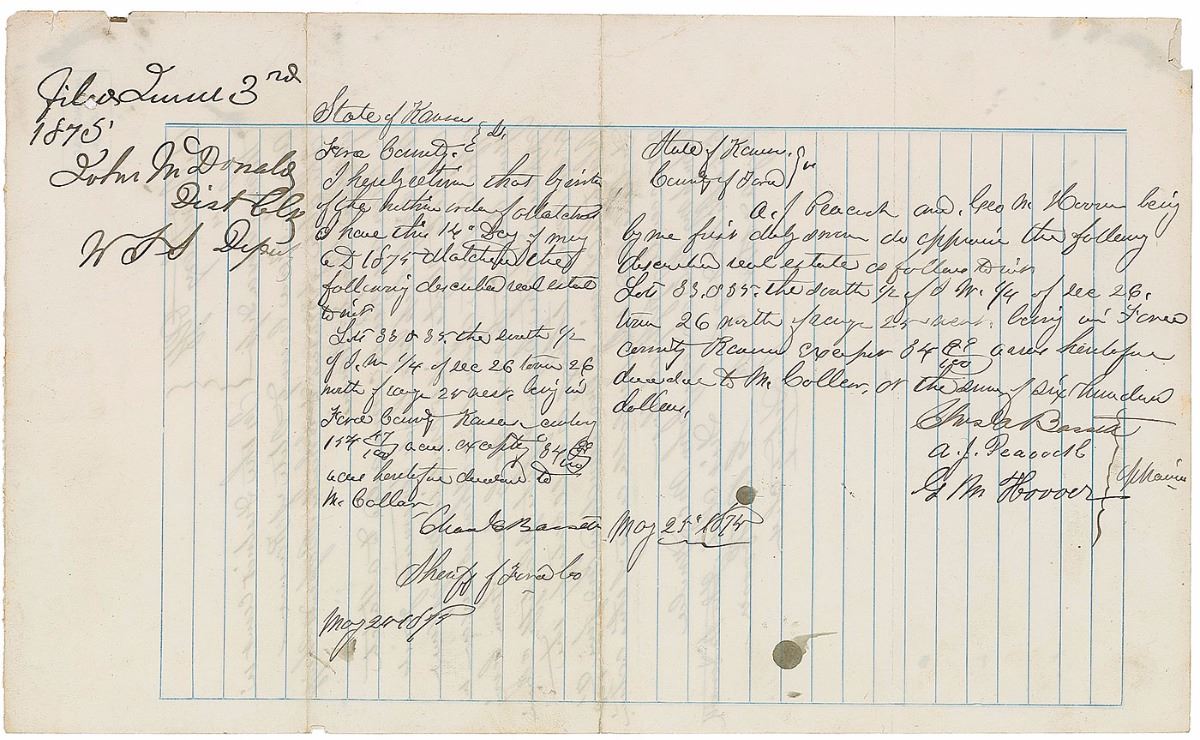 Filed June 3rd
1875
John McDonald
Dist Clk
W F S Deputy
State of Kansas
Ford County } ss
I hereby return that by virtue
of the within order of attachment
I have this 14th Day of May
A D 1875 attached the
following described real estate
to wit
Lots 33 & 35. the South 1/2
of S. W. 1/4 of Sec 26 town 26
north of range 25 west. being in
Ford County Kansas
154 47/100 acres. excepting 84
acres heretofore deeded to
McCollar
Chas E Bassett
Sheriff of Ford Co
May 25 1875
State of Kansas }
County of Ford } ss
A. J. Peacock and. Geo M. Hoover being
by me first duly sworn do appraise the following
described real estate as follows to wit
Lots 33. & 35. the South 1/2 of S W. 1/4 of sec 26.
town 26 north of range 25 west. being in Ford
county Kansas except 84 acres heretofore
deeded to McCollar. at the sum of six hundred
dollars.
Chas E Bassett
A. J. Peacock
G M Hoover
} appraisers
May 25th 1875